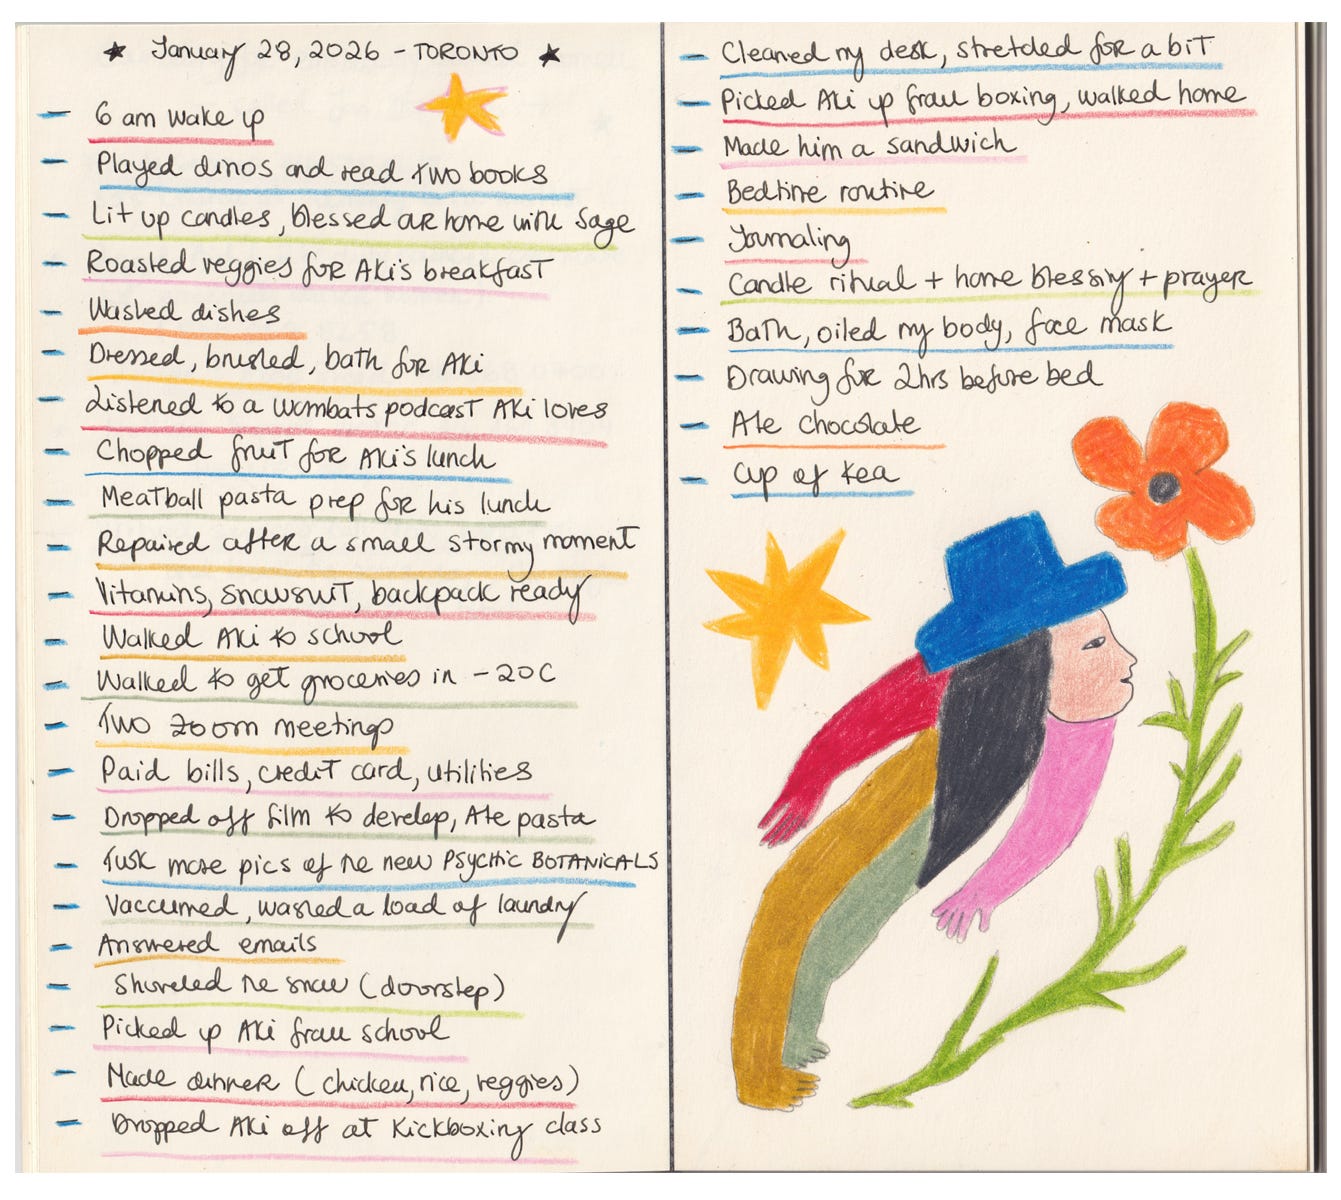 ★ January 28, 2026 - TORONTO ★
- 6 am wake up
- Played dinos and read two books
- Lit up candles, blessed our home with sage
- Roasted veggies for Aki's breakfast
- Washed dishes
- Dressed, brushed, bath for Aki
- Listened to a wombats podcast Aki loves
- Chopped fruit for Aki's lunch
- Meatball pasta prep for his lunch
- Repaired after a small stormy moment
- Vitamins, snowsuit, backpack ready
- Walked Aki to school
- Walked to get groceries in -20C
- Two zoom meetings
- Paid bills, credit card, utilities
- Dropped off film to develop, Ate pasta
- Tusk more pics of the new PSYCHIC BOTANICALS
- Vaccumed, washed a load of laundry
- Answered emails
- Shoveled the snow (doorstep)
- Picked up Aki from school
- Made dinner (chicken, rice, veggies)
- Dropped Aki off at Kickboxing class
- Cleaned my desk, stretched for a bit
- Picked Aki up from boxing, walked home
- Made him a sandwich
- Bedtime routine
- Journaling
- Candle ritual + home blessing + prayer
- Bath, oiled my body, face mask
- Drawing for 2hrs before bed
- Ate chocolate
- Cup of tea